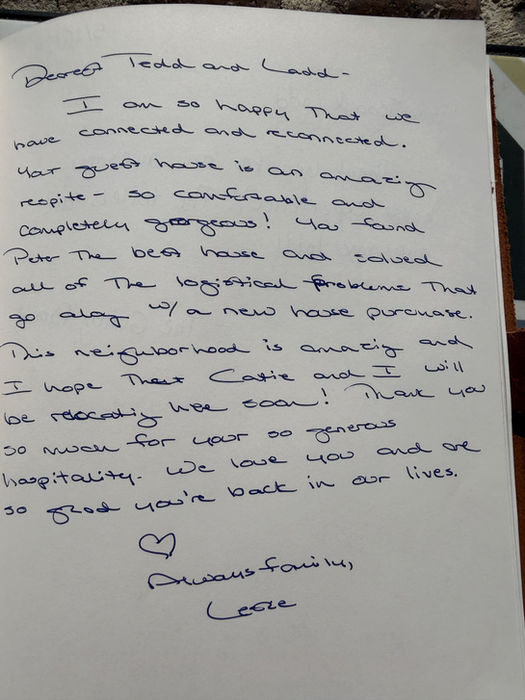 Dearest Tedd and Ladd-
I am so happy that we
have connected and reconnected.
Your guest house is an amazing
respite - so comfortable and
completely gorgeous! You found
Peter the best house and solved
all of the logistical problems that
go along w/ a new house purchase.
This neighborhood is amazing and
I hope that Catie and I will
be relocating here soon! Thank you
so much for your so generous
hospitality. We love you and are
so glad you're back in our lives.
♡
Always family,